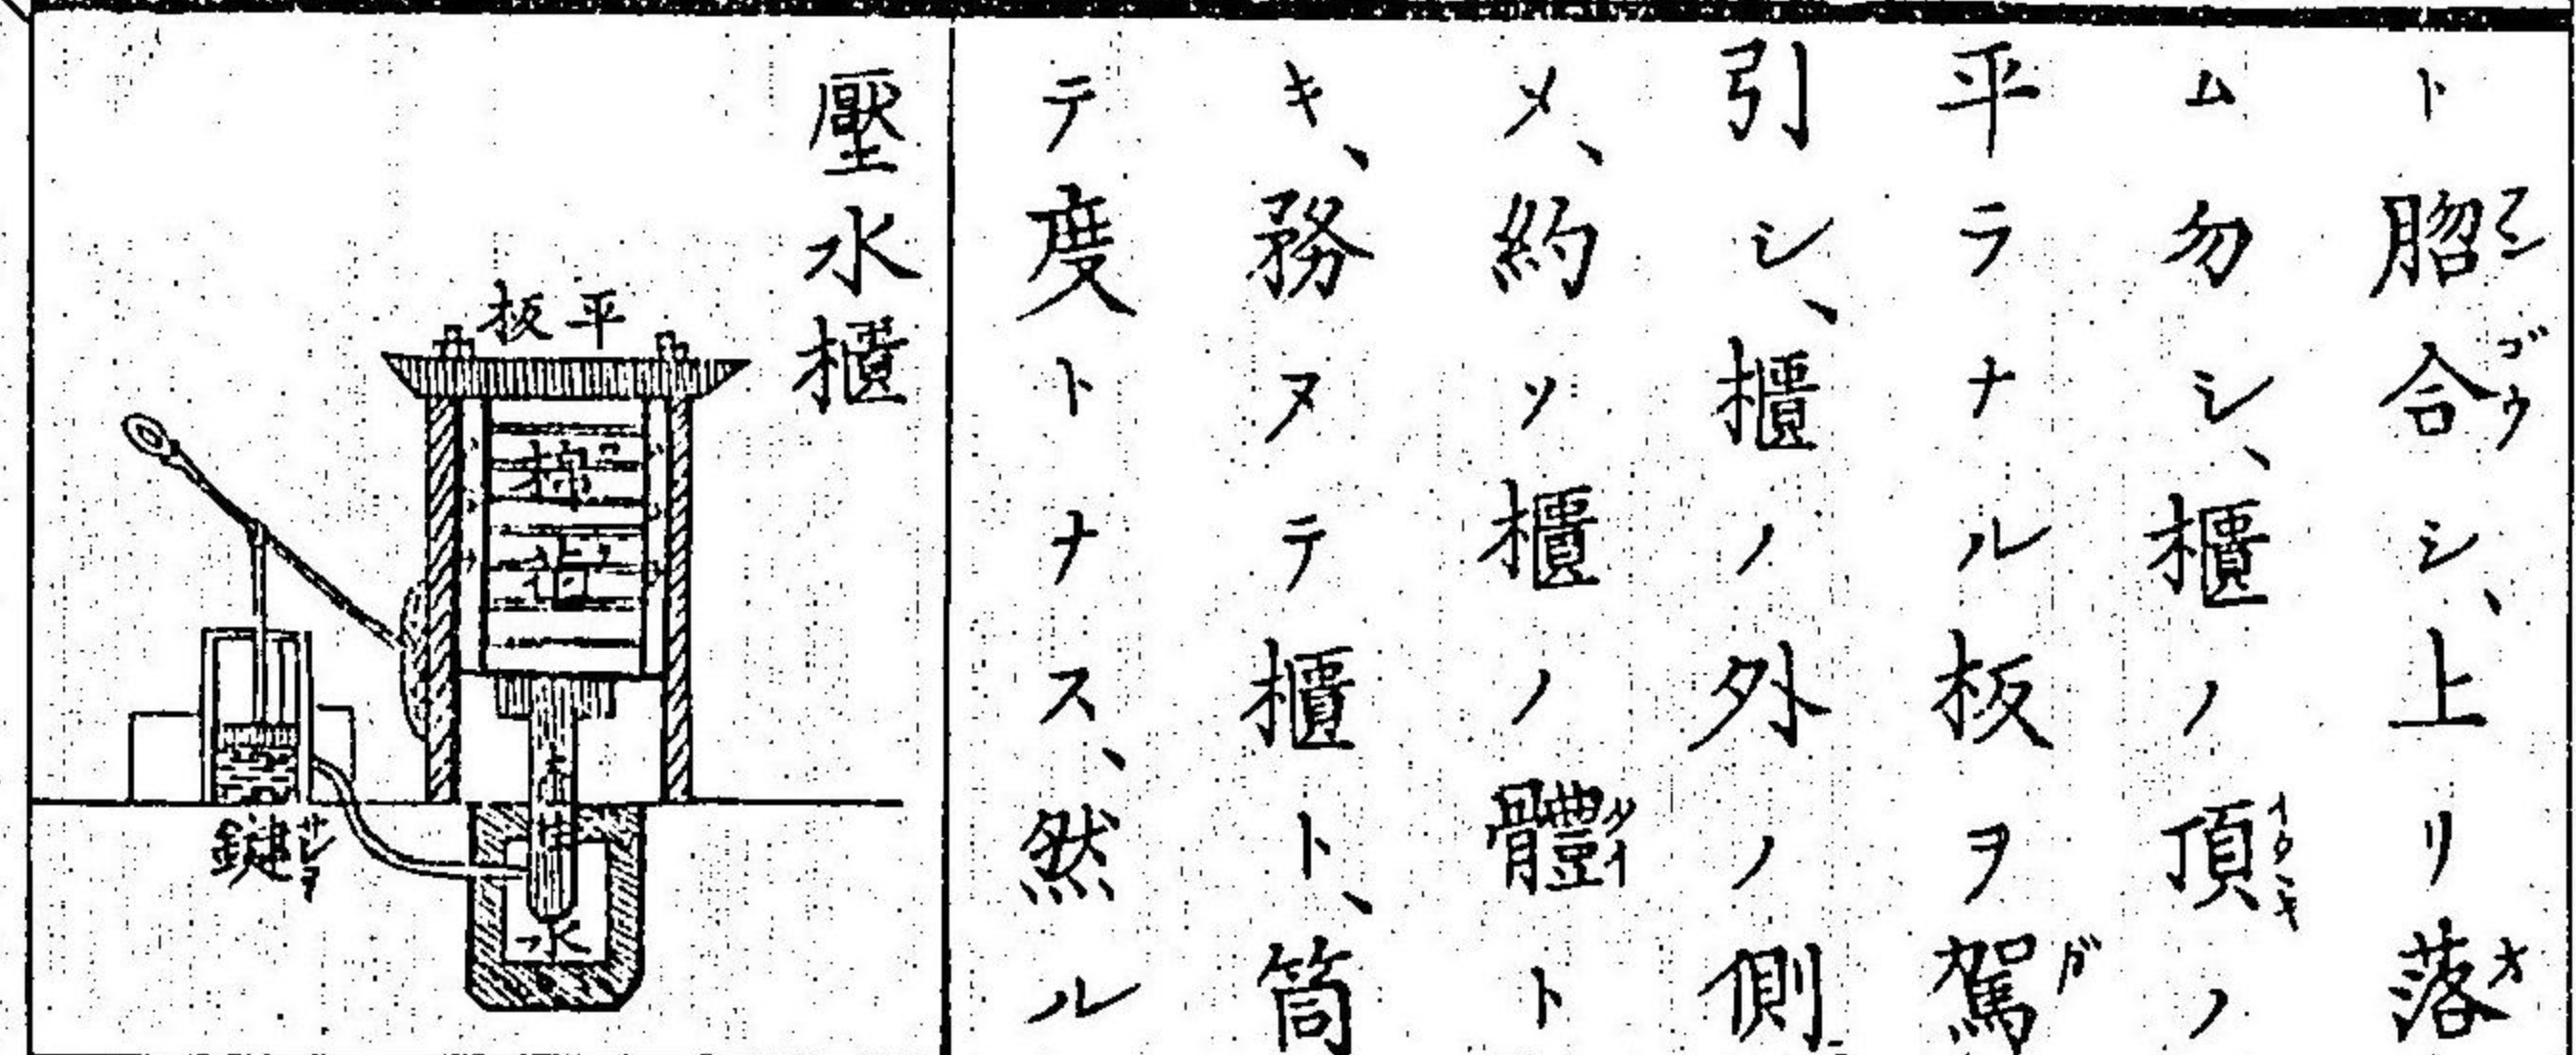 ト脗合シ、上リ落
ム勿シ、櫃ノ頂ノ
平ラナル板ヲ駕
引シ、櫃ノ外ノ側
メ、約ソ櫃ノ體ト
キ、務ヌテ櫃ト、筒
テ度トナス、然ル
壓水櫃
板平
棉花
鍵
柱
水